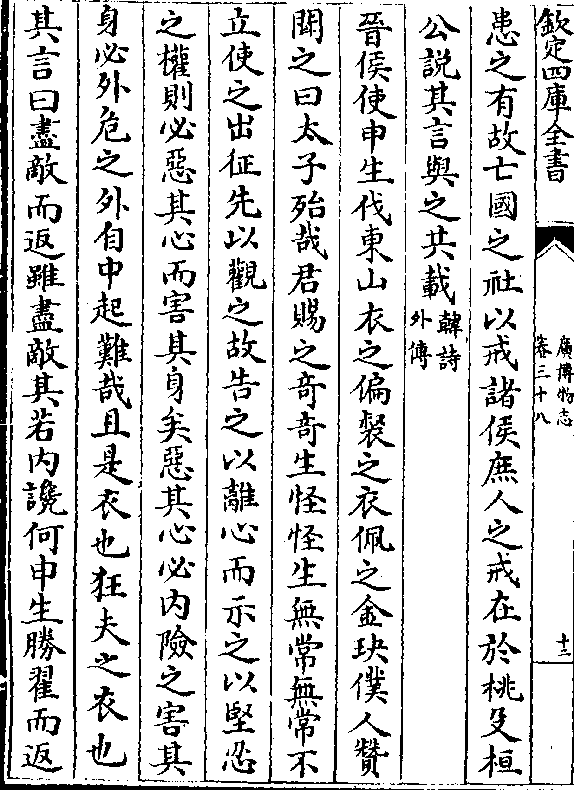 欽定四庫全書
廣博物志
卷三十八
十三
患之有故亡國之社以戒諸侯庶人之戒在於桃殳桓
公說其言與之共載韓詩外傳
晉侯使申生伐東山衣之偏裻之衣佩之金玦僕人贊
聞之曰太子殆哉君賜之奇奇生怪怪生無常無常不
立使之出征先以觀之故告之以離心而示之以堅忍
之權則必惡其心而害其身矣惡其心必内險之害其
身必外危之外自中起難哉且是衣也狂夫之衣也
其言曰盡敵而返雖盡敵其若内讒何申生勝翟而返